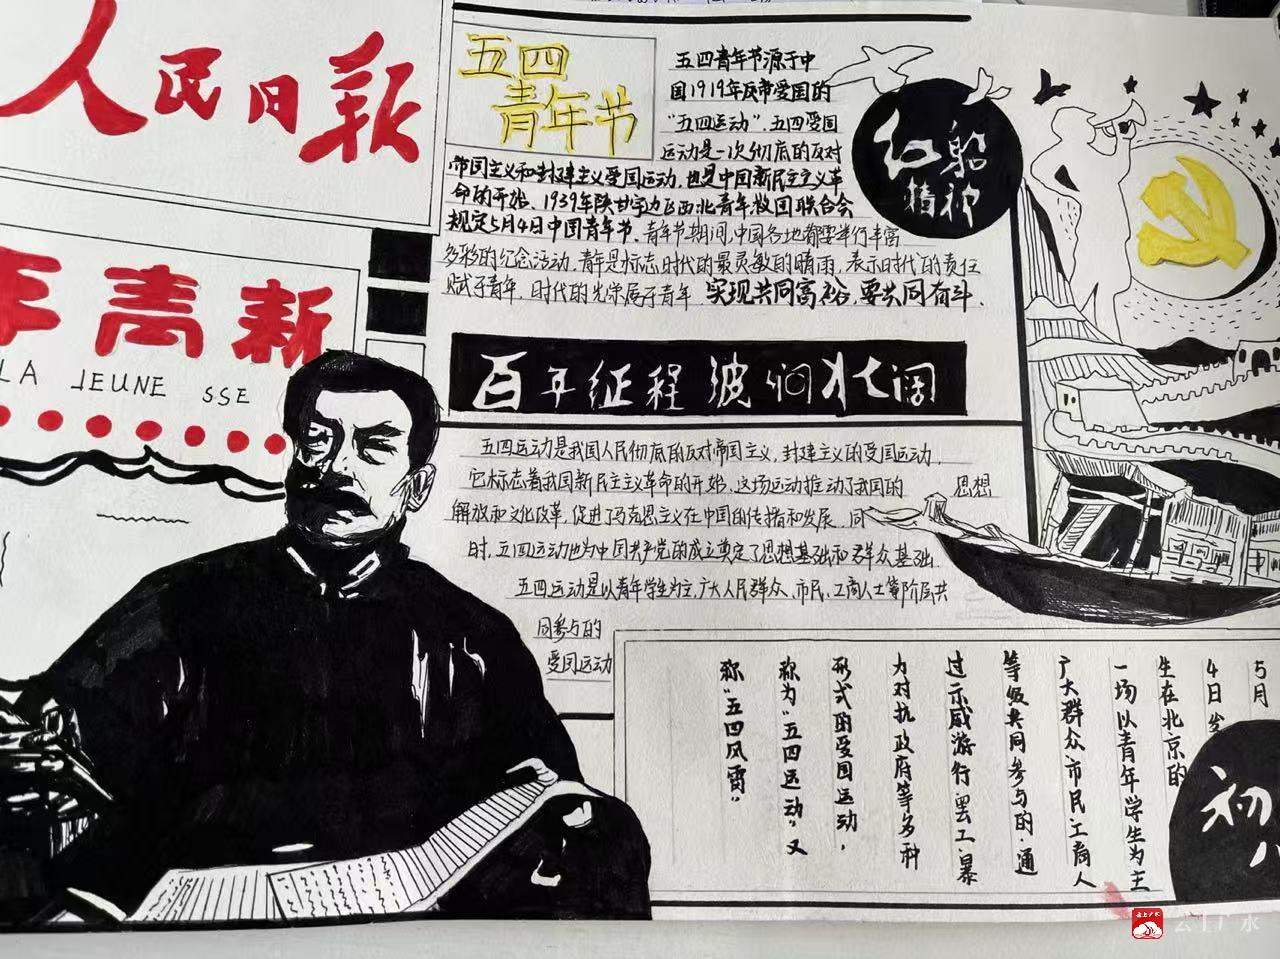 人民日报
五四
青年节
五四青年节源于中
国1919年反帝爱国的
"五四运动"，五四爱国
运动是一次彻底的反对
帝国主义和封建主义爱国运动，也是中国新民主主义革
命的开始。1939年陕甘宁边区西北青年救国联合会
规定5月4日中国青年节。青年节期间，中国各地都要举行丰富
多彩的纪念活动，青年是标志时代的最灵敏的晴雨，表示时代的责任
赋予青年，时代的光荣属于青年 实现共同富裕，要共同奋斗。
红船
精神
年青新
LA JEUNE SSE
百年征程波涧壮阔
五四运动是我国人民彻底的反对帝国主义，封建主义的爱国运动，
它标志着我国新民主主义革命的开始，这场运动推动了我国的 思想
解放和文化改革，促进了马克思主义在中国的传播和发展。同
时，五四运动也为中国共产党的成立奠定了思想基础和群众基础
五四运动是以青年学生为主，广大人民群众、市民、工商人士等阶层共
同参与的
爱国运动
5月
4日发
生在北京的
一场以青年学生为主
广大群众市民工商人
等级共同参与的，通
过示威游行罢工暴
力对抗政府等多种
形式的爱国运动，
称为"五四运动"又
称"五四风雷"
初
云上广水